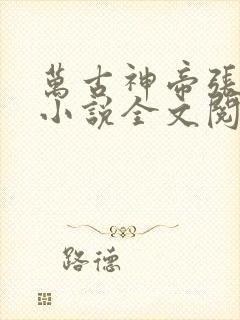 萬古神帝張
小說全文閱
路德